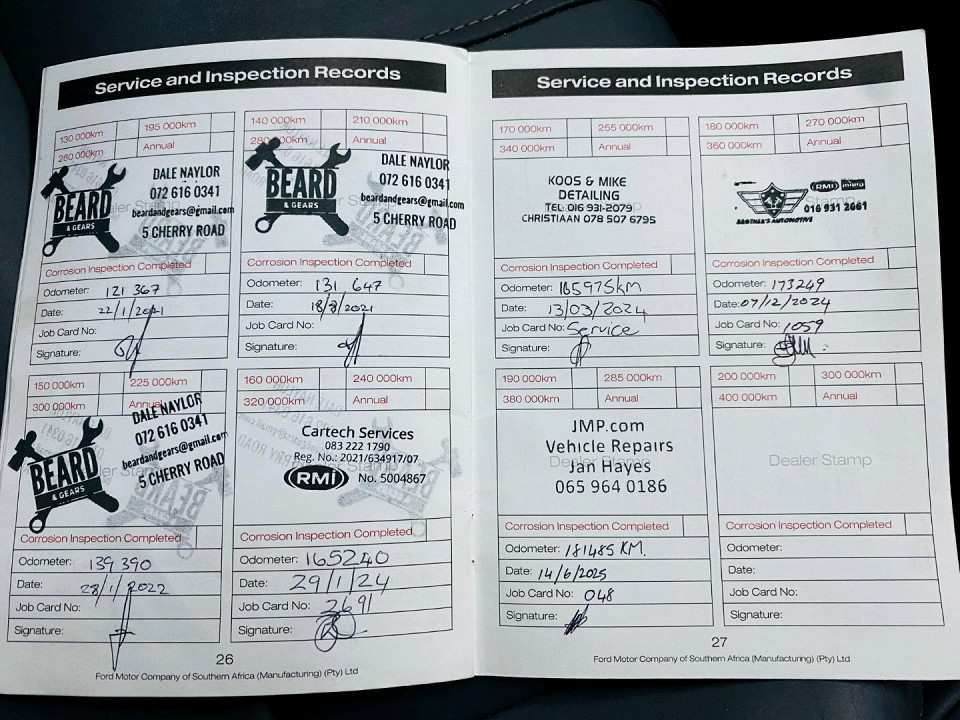 Service and Inspection Records
130 000km 195 000km
260 000km Annual
BEARD
& GEARS
DALE NAYLOR
072 616 0341
beardandgears@gmail.com
5 CHERRY ROAD
Corrosion Inspection Completed
Odometer: 121 367
Date: 22/1/2021
Job Card No:
Signature:
140 000km 210 000km
280 000km Annual
BEARD
& GEARS
DALE NAYLOR
072 616 0341
beardandgears@gmail.com
5 CHERRY ROAD
Corrosion Inspection Completed
Odometer: 131 647
Date: 18/8/2021
Job Card No:
Signature:
150 000km 225 000km
300 000km Annual
BEARD
& GEARS
DALE NAYLOR
072 616 0341
beardandgears@gmail.com
5 CHERRY ROAD
Corrosion Inspection Completed
Odometer: 139 390
Date: 28/1/2022
Job Card No:
Signature:
160 000km 240 000km
320 000km Annual
Cartech Services
083 222 1790
Reg. No.: 2021/634917/07
RMI No. 5004867
Corrosion Inspection Completed
Odometer: 165240
Date: 29/1/24
Job Card No: 2691
Signature:
26
Ford Motor Company of Southern Africa (Manufacturing) (Pty) Ltd
Service and Inspection Records
170 000km 255 000km
340 000km Annual
KOOS & MIKE
DETAILING
TEL: 016 931-2079
CHRISTIAAN 078 507 6795
Corrosion Inspection Completed
Odometer: 165975km
Date: 13/03/2024
Job Card No: Service
Signature:
180 000km 270 000km
360 000km Annual
RMI
016 931 2661
BROTHER'S AUTOMOTIVE
Dealer Stamp
Corrosion Inspection Completed
Odometer: 173249
Date: 07/12/2024
Job Card No: 1059
Signature:
190 000km 285 000km
380 000km Annual
JMP.com
Vehicle Repairs
Dealer Stamp
Jan Hayes
065 964 0186
Corrosion Inspection Completed
Odometer: 181485 KM.
Date: 14/6/2025
Job Card No: 048
Signature:
200 000km 300 000km
400 000km Annual
Dealer Stamp
Corrosion Inspection Completed
Odometer:
Date:
Job Card No:
Signature:
27
Ford Motor Company of Southern Africa (Manufacturing) (Pty) Ltd